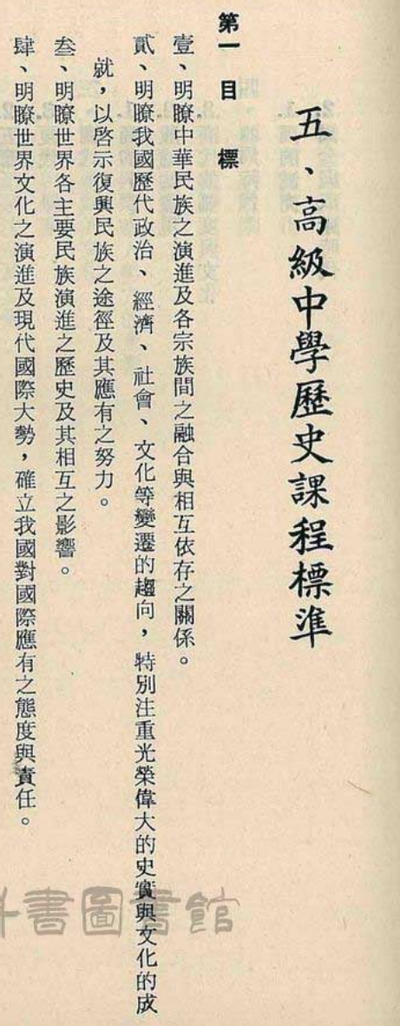 五、高級中學歷史課程標準
第一 目標
壹、明瞭中華民族之演進及各宗族間之融合與相互依存之關係。
貳、明瞭我國歷代政治、經濟、社會、文化等變遷的趨向，特別注重光榮偉大的史實與文化的成
就，以啓示復興民族之途徑及其應有之努力。
叁、明瞭世界各主要民族演進之歷史及其相互之影響。
肆、明瞭世界文化之演進及現代國際大勢，確立我國對國際應有之態度與責任。
書圖書館